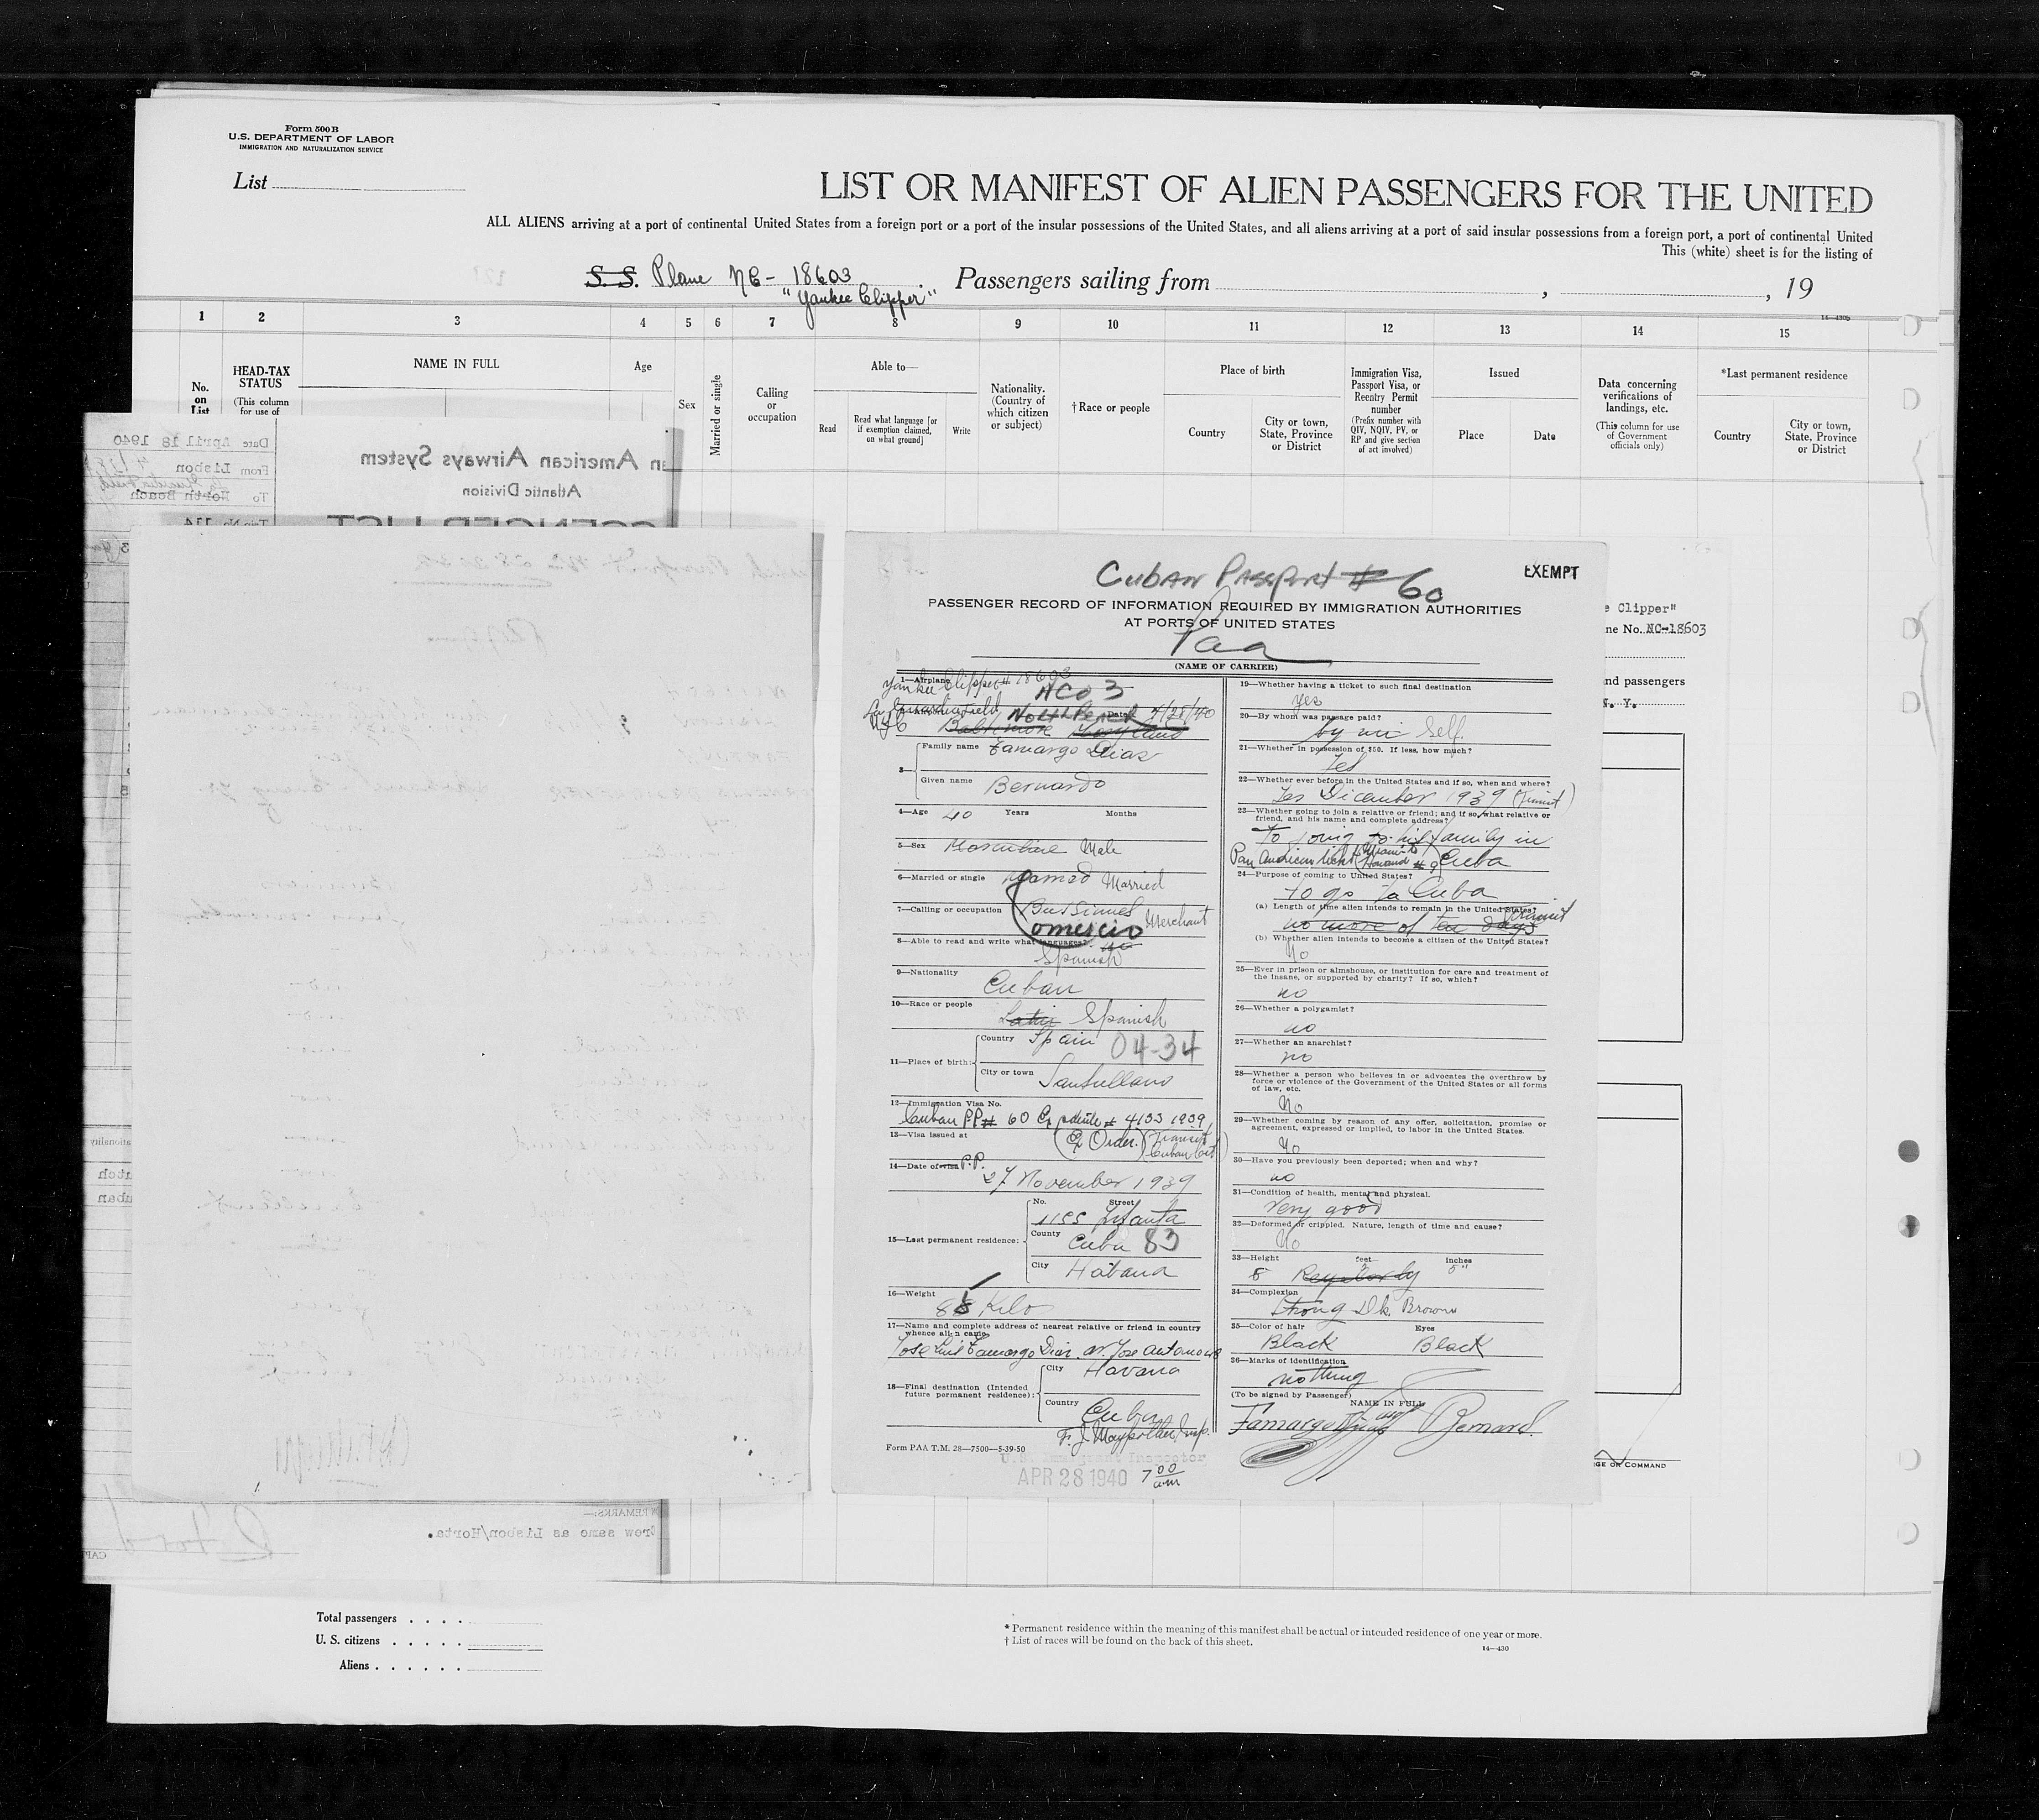 Form 500 B
U.S. DEPARTMENT OF LABOR
IMMIGRATION AND NATURALIZATION SERVICE
List
LIST OR MANIFEST OF ALIEN PASSENGERS FOR THE UNITED
ALL ALIENS arriving at a port of continental United States from a foreign port or a port of the insular possessions of the United States, and all aliens arriving at a port of said insular possessions from a foreign port, a port of continental United
This (white) sheet is for the listing of
S. S. Plane NC- 18603 Passengers sailing from , , 19
"Yankee Clipper"
14—430b
1 2 3 4 5 6 7 8 9 10 11 12 13 14 15
No. on List
HEAD-TAX STATUS
(This column for use of
NAME IN FULL
Age
Sex
Married or single
Calling or occupation
Able to—
Read
Read what language [or if exemption claimed, on what ground]
Write
Nationality. (Country of which citizen or subject)
†Race or people
Place of birth
Country
City or town, State, Province or District
Immigration Visa, Passport Visa, or Reentry Permit number
(Prefix number with QIV, NQIV, PV, or RP and give section of act involved)
Issued
Place
Date
Data concerning verifications of landings, etc.
(This column for use of Government officials only)
*Last permanent residence
Country
City or town, State, Province or District
Date April 18 1940
From Lisbon
To North Beach
Trip No. 114
an American Airways System
Atlantic Division
SSENGER LIST
Cuban Passport # 60
EXEMPT
PASSENGER RECORD OF INFORMATION REQUIRED BY IMMIGRATION AUTHORITIES
AT PORTS OF UNITED STATES
Paa
(NAME OF CARRIER)
1—Airplane
Yankee Clipper # 18603
NC03
La Guardia Field North Beach Date 4/28/40
NYC Baltimore Maryland
3— Family name Tamargo Dias
Given name Bernardo
4—Age 40 Years Months
5—Sex Masculine Male
6—Married or single Married
7—Calling or occupation Bussines Merchant
Comercio
8—Able to read and write what languages?
Spanish
9—Nationality
Cuban
10—Race or people
Latin Spanish
11—Place of birth: Country Spain 04-34
City or town Santullano
12—Immigration Visa No.
Cuban P.P.# 60 # 4133 1939
13—Visa issued at (Ex Order.) (Transit Cuban Cert)
14—Date of visa P.P.
27 November 1939
No. Street
1155 Infanta
15—Last permanent residence: County Cuba 83
City Habana
16—Weight 88 Kilo
17—Name and complete address of nearest relative or friend in country
whence alien came
Jose Luis Tamargo Dias. av. Jose Antonio
18—Final destination (Intended future permanent residence): City Havana
Country Cuba
Form PAA T.M. 28—7500—5-39-50
U.S. Immigrant Inspector
APR 28 1940 7 00 am
19—Whether having a ticket to such final destination
Yes
20—By whom was passage paid?
by mi Self.
21—Whether in possession of $50. If less, how much?
Yes
22—Whether ever before in the United States and if so, when and where?
Yes Dicember 1939 (Transit)
23—Whether going to join a relative or friend; and if so, what relative or
friend, and his name and complete address?
To joing to his family in
Pan American ticket (Miami to Havana # 9) Cuba
24—Purpose of coming to United States?
to go to Cuba
(a) Length of time alien intends to remain in the United States?
no more of ten days Transit
(b) Whether alien intends to become a citizen of the United States?
No
25—Ever in prison or almshouse, or institution for care and treatment of
the insane, or supported by charity? If so, which?
no
26—Whether a polygamist?
no
27—Whether an anarchist?
no
28—Whether a person who believes in or advocates the overthrow by
force or violence of the Government of the United States or all forms
of law, etc.
No
29—Whether coming by reason of any offer, solicitation, promise or
agreement, expressed or implied, to labor in the United States.
No
30—Have you previously been deported; when and why?
no
31—Condition of health, mental and physical.
Very good
32—Deformed or crippled. Nature, length of time and cause?
No
33—Height feet inches
5 5"
34—Complexion
Strong Dk. Brown
35—Color of hair Eyes
Black Black
36—Marks of identification
nothing
(To be signed by Passenger)
NAME IN FULL
e Clipper"
ne No. NC-18603
nd passengers
N. Y.
GE OR COMMAND
N REMARKS:—
Crew same as Lisbon/Horta.
Total passengers . . . .
U. S. citizens . . . . .
Aliens . . . . . .
* Permanent residence within the meaning of this manifest shall be actual or intended residence of one year or more.
† List of races will be found on the back of this sheet.
14—430